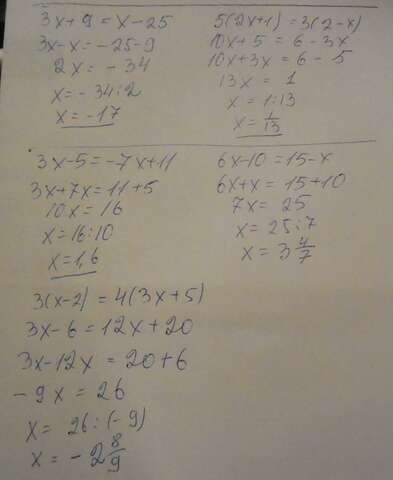 3x + 9 = x - 25
3x - x = -25 - 9
2x = -34
x = -34 : 2
x = -17
5(2x+1) = 3(2-x)
10x + 5 = 6 - 3x
10x + 3x = 6 - 5
13x = 1
x = 1 : 13
x = 1/13
3x - 5 = -7x + 11
3x + 7x = 11 + 5
10x = 16
x = 16 : 10
x = 1,6
6x - 10 = 15 - x
6x + x = 15 + 10
7x = 25
x = 25 : 7
x = 3 4/7
3(x-2) = 4(3x+5)
3x - 6 = 12x + 20
3x - 12x = 20 + 6
-9x = 26
x = 26 : (-9)
x = -2 8/9